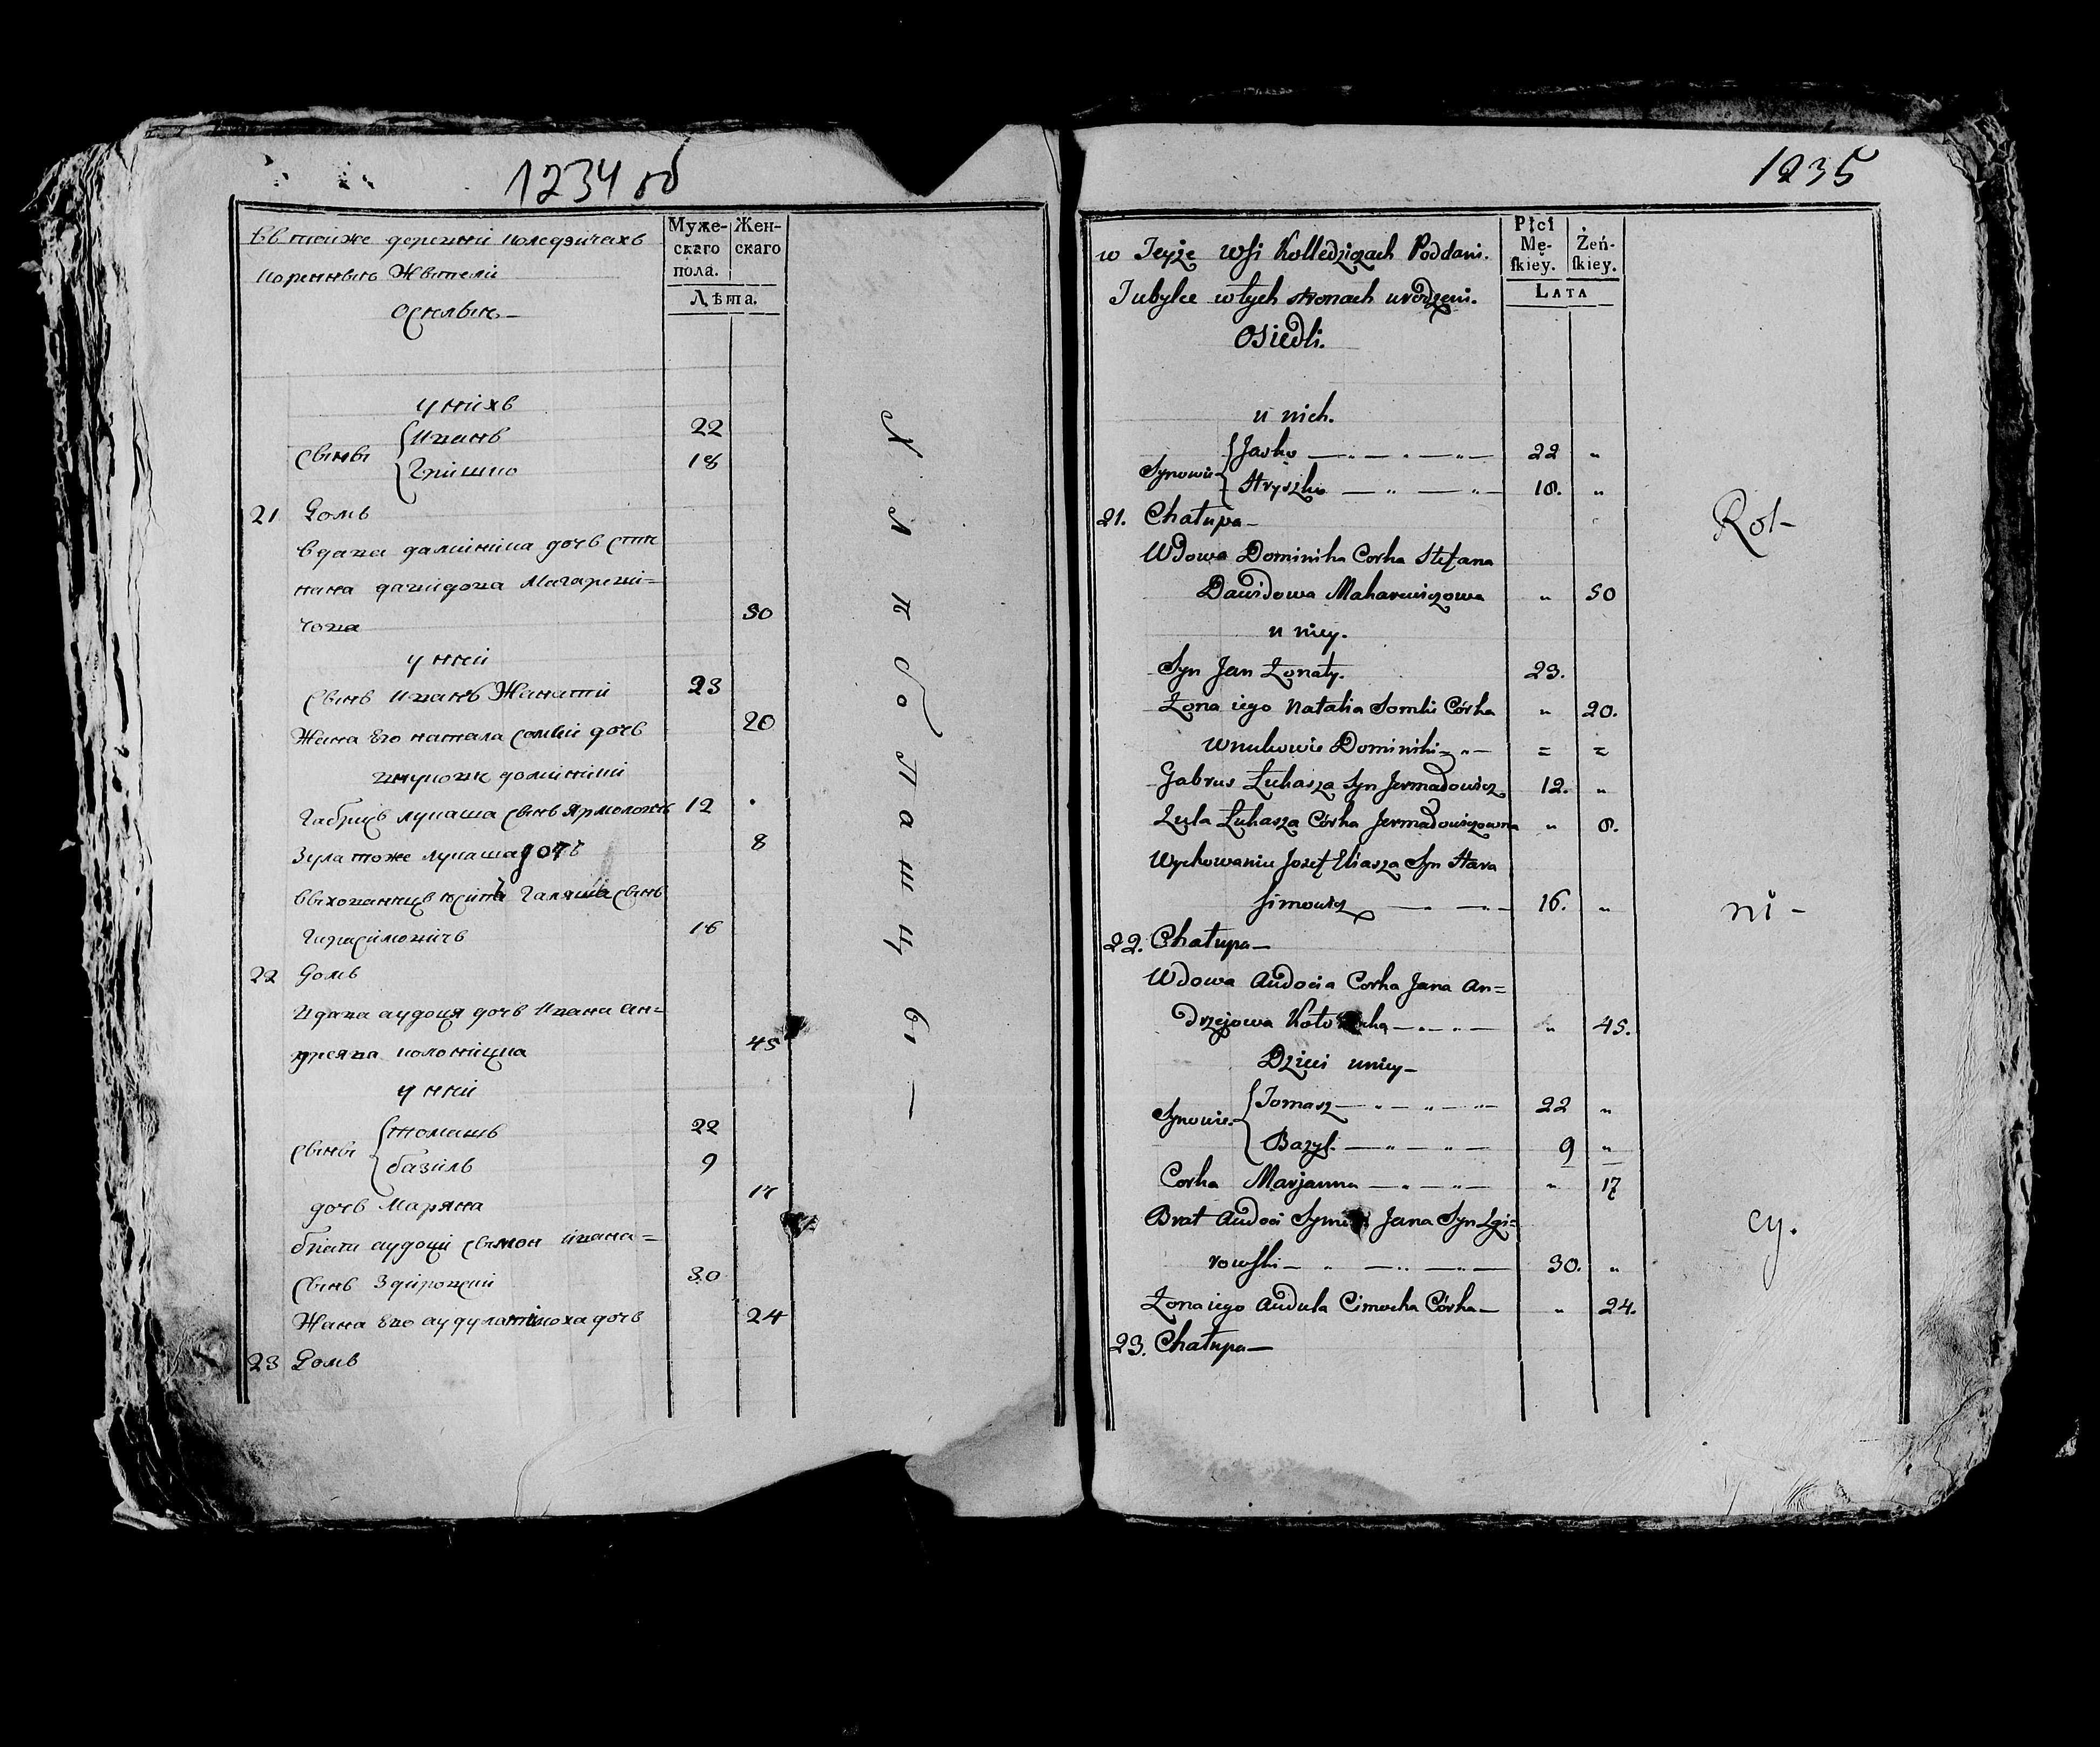 1234 об
Въ тойже деревни Коледзичахъ
коренныхъ Жители
Оселыи
Муже-
скаго
пола.
Жен-
скаго
Лѣта.
у нихъ
сыны
Иванъ 22
Гришко 18
21 Домъ
Вдова даминика дочь сте
пана давидова Магареви=
чова 50
у ней
сынъ Иванъ Жанатй 23
Жена Его натала сомки дочь 20
внуковя доминики
Габрусь лукаша сынъ Ярмоловичъ 12
Зуля тоже лукаша дочъ 8
выхованецъ Галяша сынъ
Гарасимовичъ 16
22 Домъ
Вдова аудоця дочь Ивана Ан=
дреява 45
у ней
сыны
томашъ 22
базиль 9
дочь Маряна 17
братъ аудоци сымон ивана=
сынъ Здировский 30
Жана Его аудуля тимоха дочь 24
23 Домъ
Хлѣбопашцы —
1235
w Teyże wsi Kolledziczach Poddani.
Tubylce w tych stronach urodzeni.
Osiedli.
Płci
Mę-
skiey.
Żeń-
skiey.
LATA
u nich.
Synowie
Jasko — „ — „ — „ — 22 „
Hryszko — „ — „ — 18. „
21. Chałupa —
Wdowa Dominika Corka Stefana
Dawidowa Maharewiczowa „ 50
u niey.
Syn Jan Żonaty. 23.
Żona iego Natalia Somki Córka „ 20.
Wnukowie Dominiki — „ — = =
Gabrus Łukasza Syn Jermałowicz 12. „
Zula Łukasza Córka Jermałowiczowna „ 8.
Wychowaniec Jozef Eliasza Syn Hara
simowicz — — 16. „
22. Chałupa —
Wdowa Audocia Corka Jana An=
drzejowa — „ — „ — „ 45.
Dzieci u niey —
Synowie.
Tomasz — „ — „ — „ 22 „
Bazyl. — „ — „ — 9 „
Corka Marjanna — „ — „ — „ 17
Brat Audoci Jana Syn Zgi=
rowski — „ — „ — „ — 30. „
Żona iego Audula Cimocha Córka — „ 24.
23. Chałupa —
Rol-
ni-
cy.